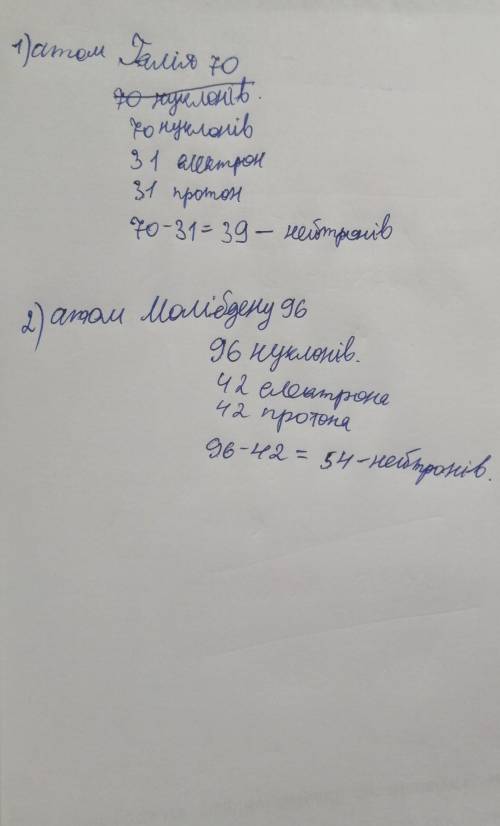 1) атом Галія 70
70 нуклонів.
70 нуклонів
31 електрон
31 протон
70-31=39 — нейтронів
2) атом Молібдену 96
96 нуклонів.
42 електрона
42 протона
96-42 = 54-нейтронів.